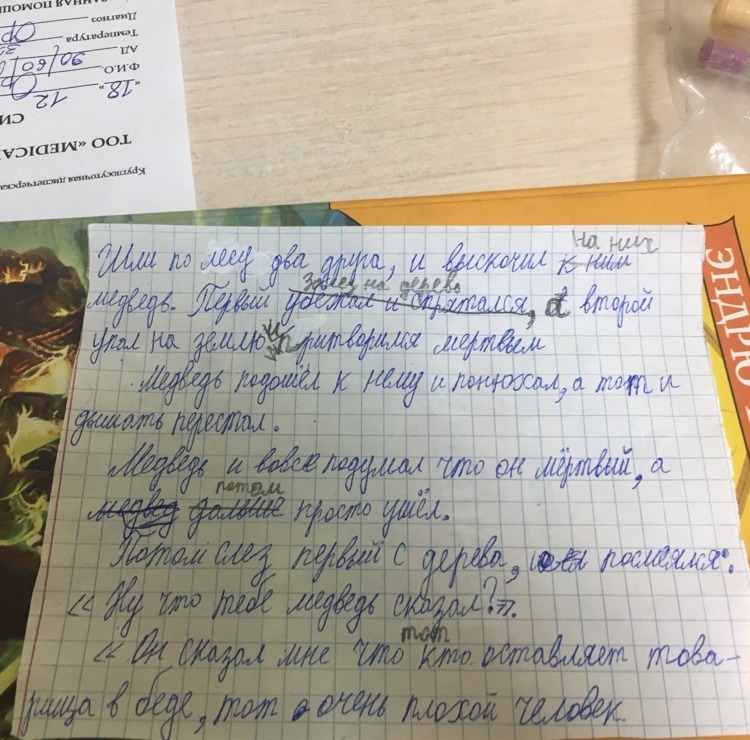 ННАЯ ПОМОЩ
Диагноз
Температура
АД 90/60
Ф.И.О.
«18» 12
СИ
ТОО «MEDICA
Круглосуточная диспетчерска
ОРДЫНС
на них
Шли по лесу два друга, и выскочил к ним
Залез на дерево
медведь. Первый убежал и спрятался, а второй
упал на землю и притворился мертвым
Медведь подошёл к нему и понюхал, а тот и
дышать перестал.
Медведь и вовсе подумал что он мёртвый, а
потом
медвед дальше просто ушёл.
Потом слез первый с дерева, и посмеялся:
« Ну что тебе медведь сказал?».
тот
« Он сказал мне что кто оставляет това-
рища в беде, тот очень плохой человек.